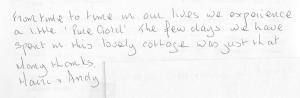 From time to time in our lives we experience
a little 'Pure Gold' The few days we have
spent in this lovely cottage was just that
Many thanks
& Andy